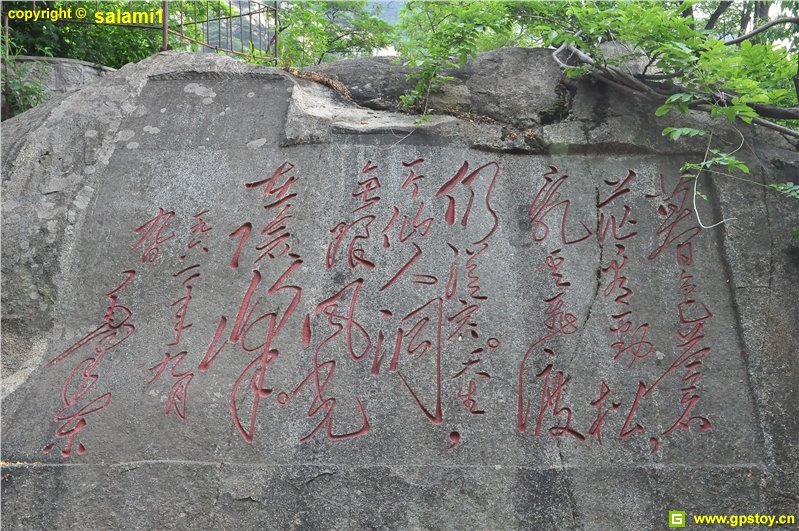 copyright © salami1
暮色蒼
茫看勁松，
乱云飛渡
仍從容。天生
一个仙人洞，
無限風光
在險峰。
一九六一年九月
九日
毛澤东
www.gpstoy.cn